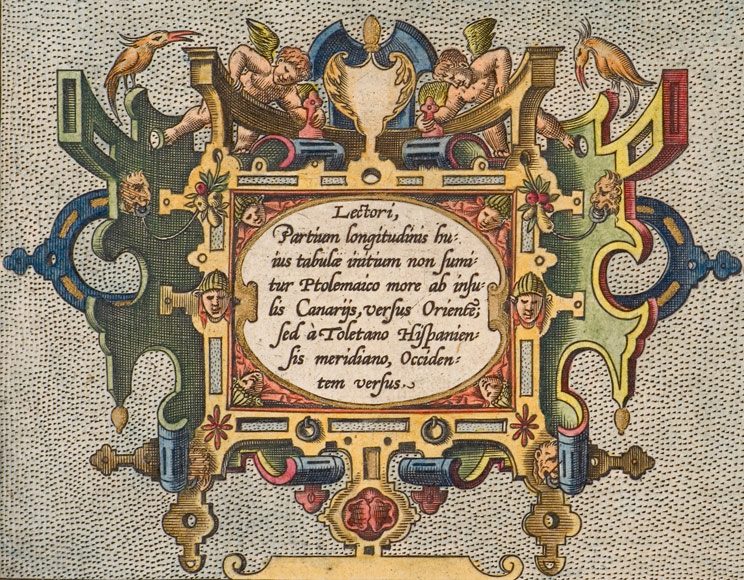 Lectori,
Partium longitudinis hu:
ius tabulæ initium non sumi:
tur Ptolemaico more ab insu:
lis Canarijs, versus Orientẽ;
sed à Toletano Hispanien:
sis meridiano, Occiden:
tem versus.